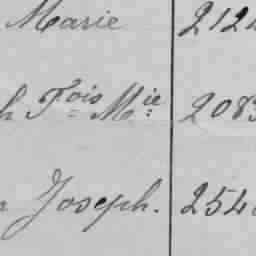 Marie 212
h Fois Mie 2083
Joseph. 254